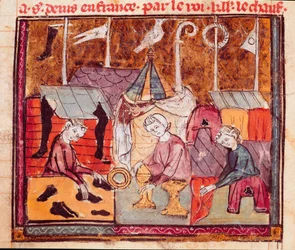 a. s. denis en france. par le roi .kll. le chauf.